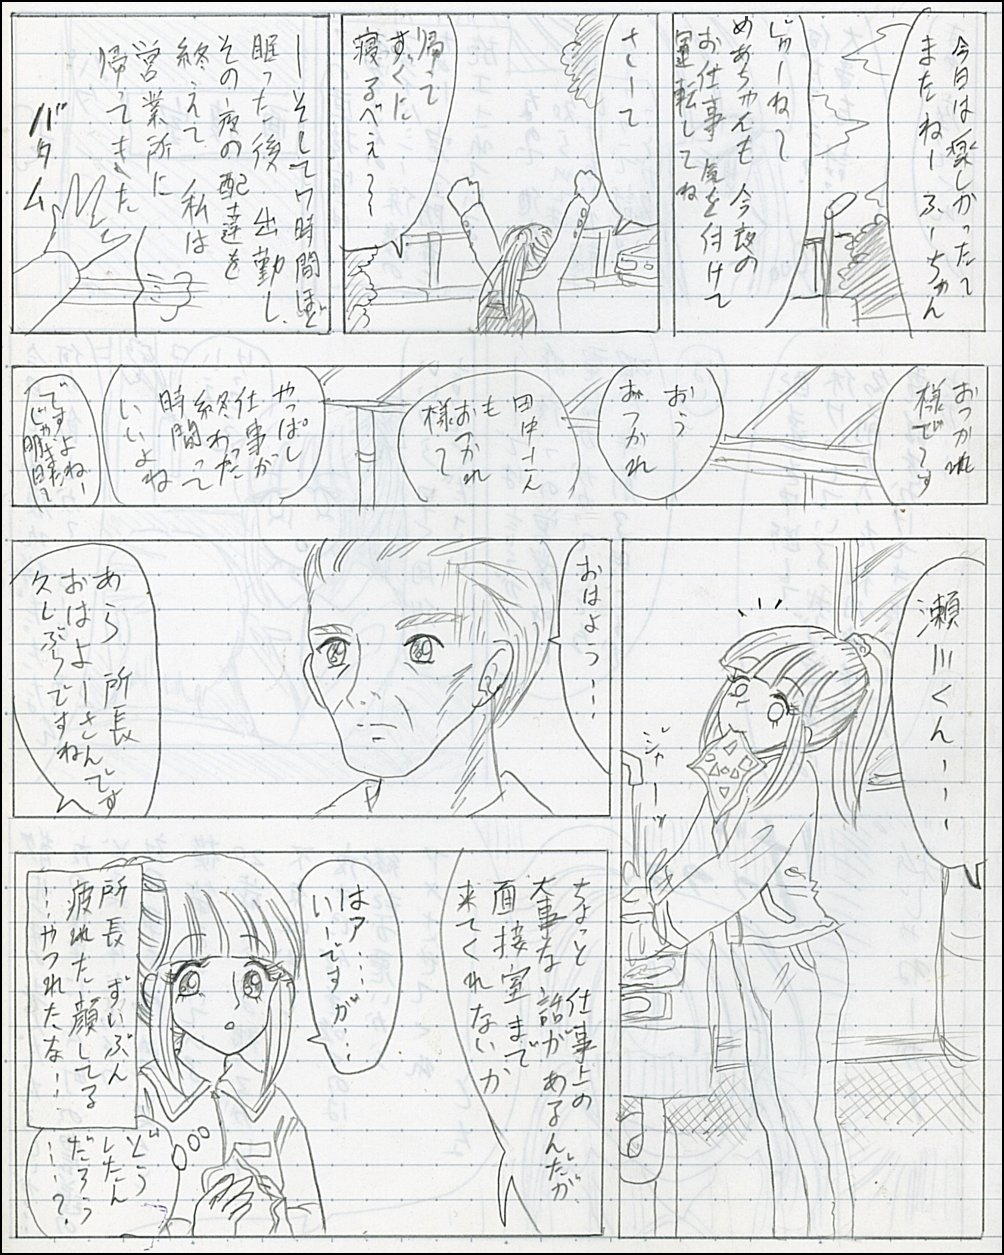 今日は楽しかったて
またねーふーちゃん
じゃーねて
めあちゃんも今夜の
お仕事気を付けて
運転してね
さーて
帰って
すぐに
寝るべぇ〜〜
ーそして7時間ほど
眠った後 出勤し、
その夜の配達を
終えて 私は
営業所に
帰ってきた
バタム
おつかれ
様でーす
おう
おつかれ
田中さん
も
おつかれ
様て
やっぱし
仕事が
終わった
時間って
いいよね
ですよねー
じゃ
明日て
瀬川くんーーー
ジャーッ
おはよう…
あら 所長
おはよーさんです
久しぶりですね
ちょっと 仕事上の
大事な 話が あるんだが
面接室まで
来てくれないか
はァ……
いーですが…
所長 ずいぶん
疲れた顔してる
…やつれたな…
どう
したん
だろう
…?